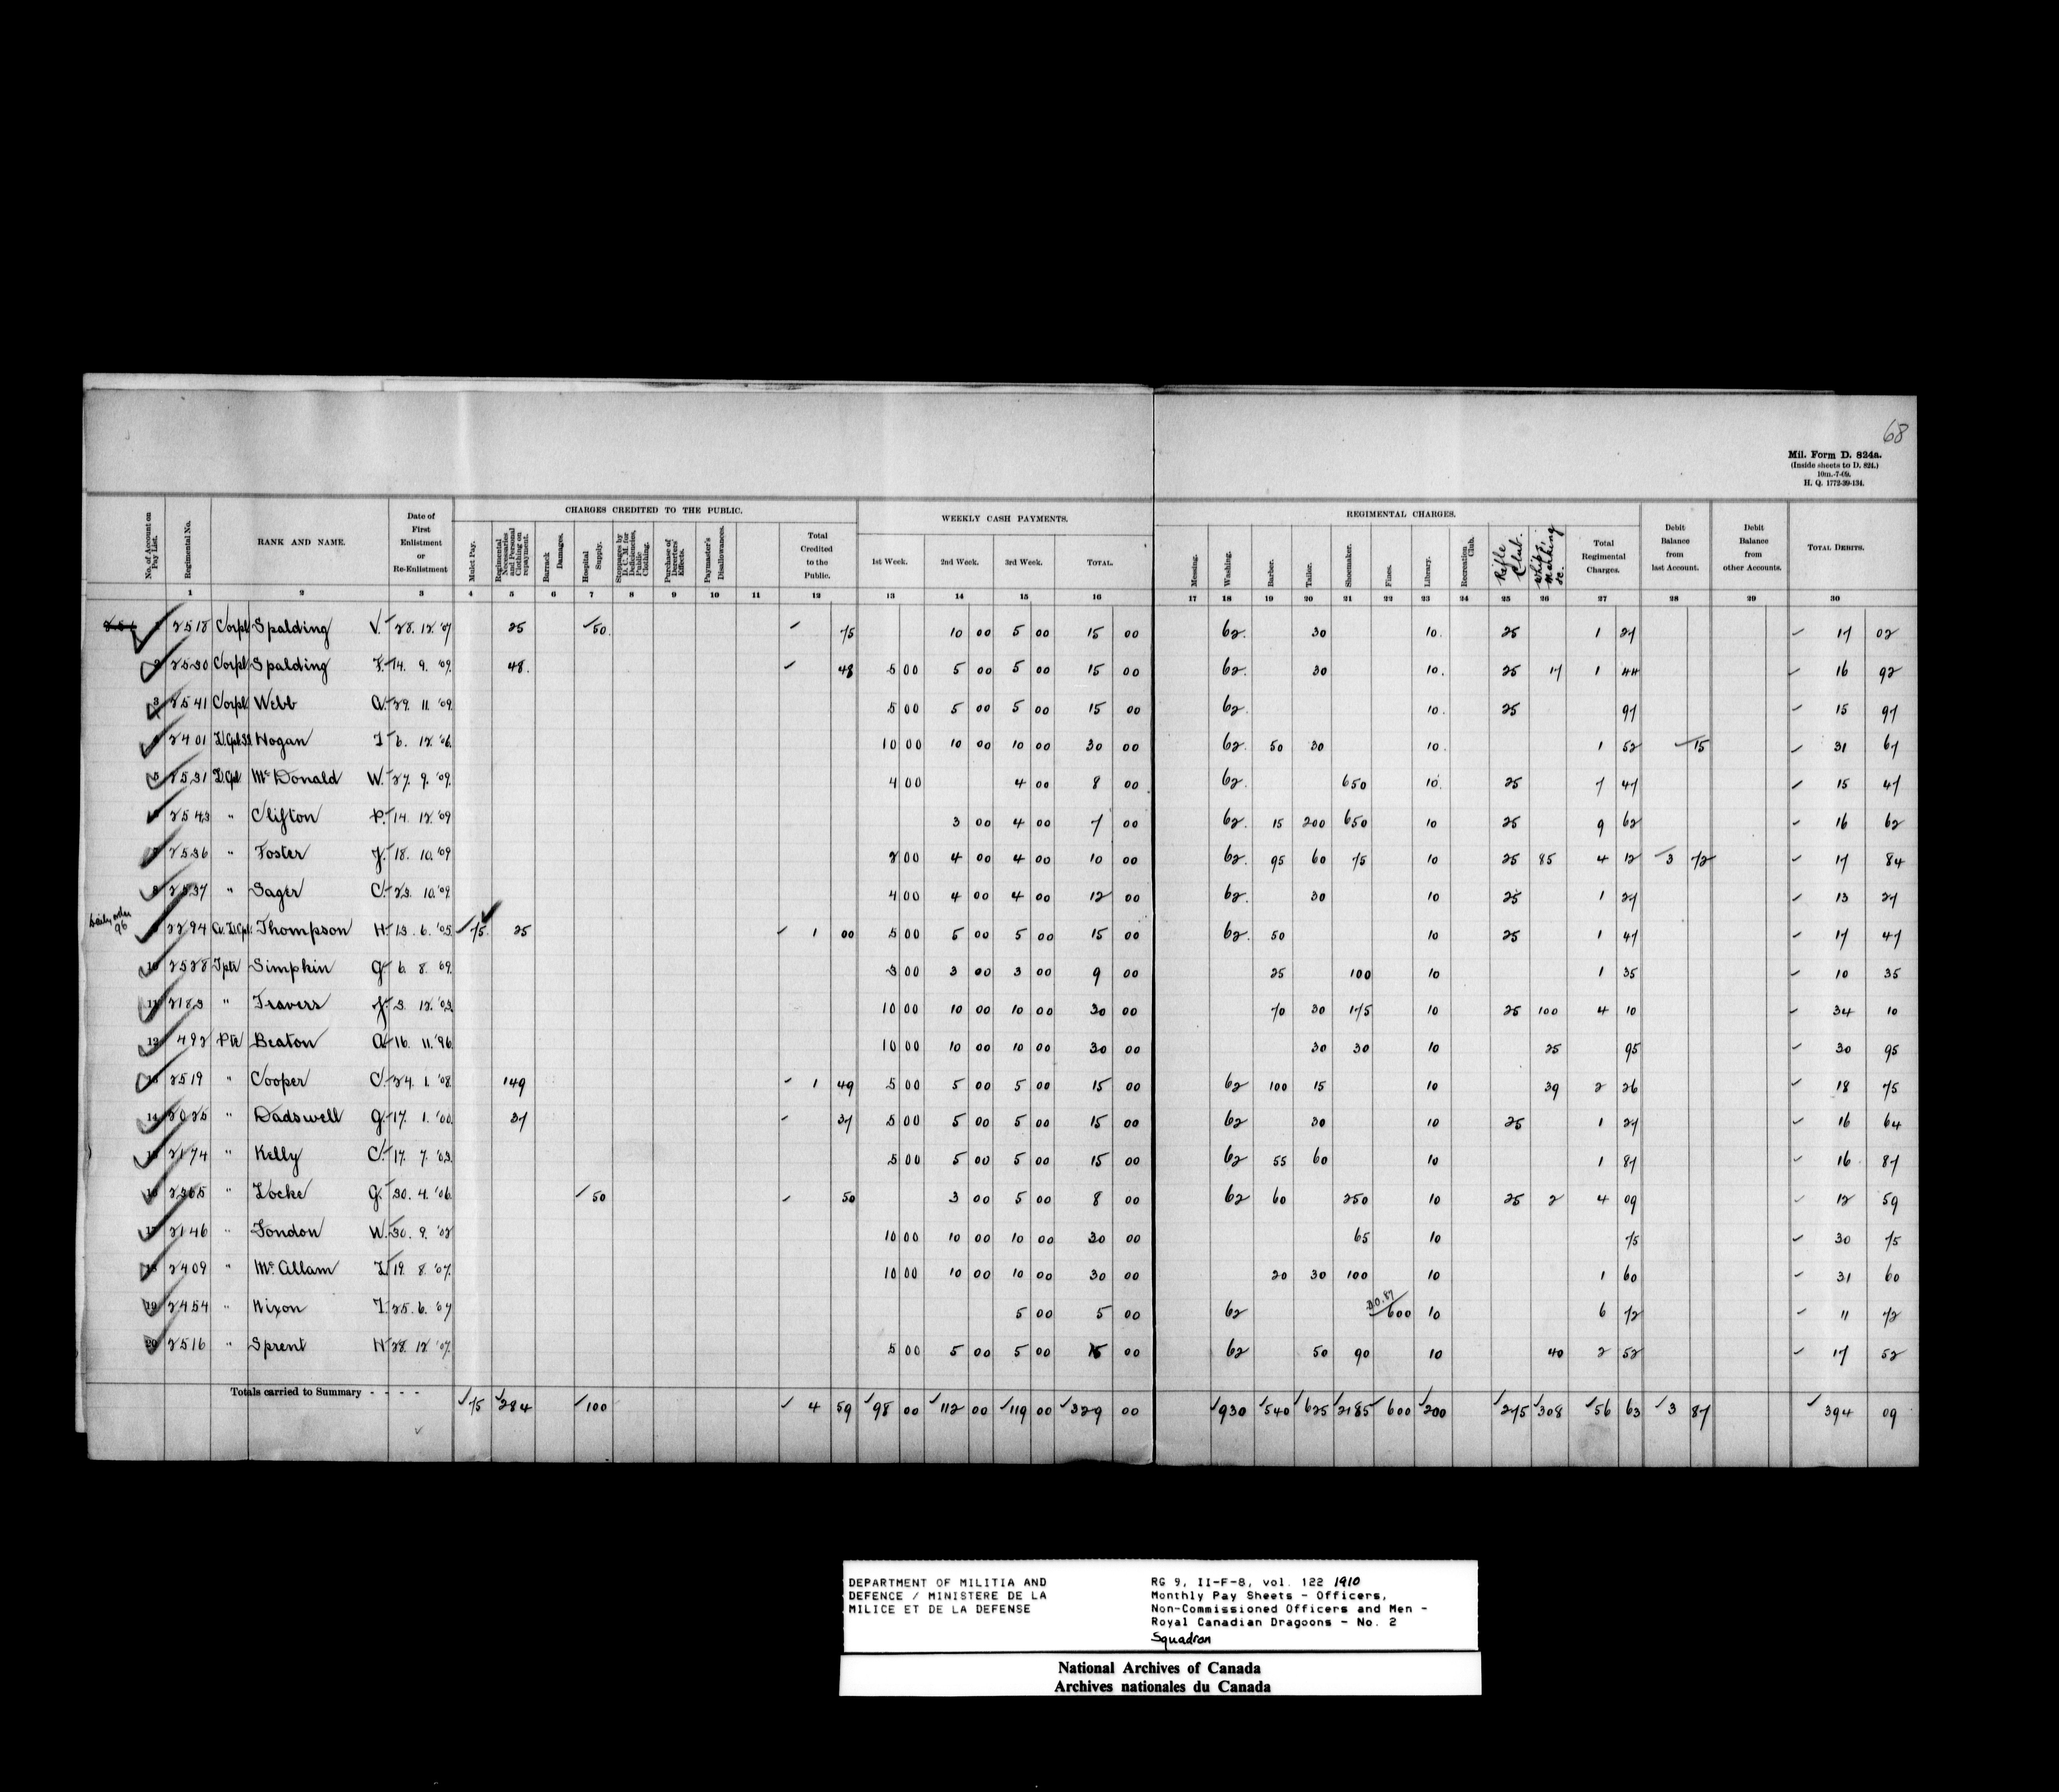 68
Mil. Form D. 824a.
(Inside sheets to D. 824.)
10m.-7-09.
H. Q. 1772-39-134.
No. of Account on Pay List. Regimental No. RANK AND NAME. Date of First Enlistment or Re-Enlistment CHARGES CREDITED TO THE PUBLIC. WEEKLY CASH PAYMENTS. REGIMENTAL CHARGES. Debit Balance from last Account. Debit Balance from other Accounts. TOTAL DEBITS.
Mulct Pay. Regimental Necessaries and Personal Clothing on repayment. Barrack Damages. Hospital Supply. Stoppages by D. C. M. for Deficiencies, Public Clothing. Purchase of Deserters' Effects. Paymaster's Disallowances. Total Credited to the Public. 1st Week. 2nd Week. 3rd Week. TOTAL. Messing. Washing. Barber. Tailor. Shoemaker. Fines. Library. Recreation Club. Rifle Club. Whips, Marking &c. Total Regimental Charges.
1 2 3 4 5 6 7 8 9 10 11 12 13 14 15 16 17 18 19 20 21 22 23 24 25 26 27 28 29 30
1 2518 Corpl Spalding V. 28. 12. '07 25 50 75 10 00 5 00 15 00 62 30 10 25 1 27 17 02
2 2530 Corpl Spalding F. 14. 9. '09 48 48 5 00 5 00 5 00 15 00 62 30 10 25 17 1 44 16 92
3 2541 Corpl Webb A. 29. 11. '09 5 00 5 00 5 00 15 00 62 10 25 97 15 97
4 2401 Hogan 6. 12. '06 10 00 10 00 10 00 30 00 62 50 30 10 1 52 15 31 67
5 2531 L/Cpl McDonald W. 27. 9. '09 4 00 4 00 8 00 62 650 10 25 7 47 15 47
6 2543 " Clifton P. 14. 12. '09 3 00 4 00 7 00 62 15 200 650 10 25 9 62 16 62
7 2536 " Foster J. 18. 10. '09 2 00 4 00 4 00 10 00 62 95 60 75 10 25 85 4 12 3 72 17 84
8 2537 " Sager C. 23. 10. '09 4 00 4 00 4 00 12 00 62 30 10 25 1 27 13 27
Daily order 96
9 2294 Thompson H. 13. 6. '05 75 25 1 00 5 00 5 00 5 00 15 00 62 50 10 25 1 47 17 47
10 2528 Tptr Simpkin G. 6. 8. '09 3 00 3 00 3 00 9 00 25 100 10 1 35 10 35
11 2183 " Travers J. 3. 12. '03 10 00 10 00 10 00 30 00 70 30 175 10 25 100 4 10 34 10
12 492 Pte Beaton A. 16. 11. '96 10 00 10 00 10 00 30 00 30 30 10 25 95 30 95
13 2519 " Cooper C. 24. 1. '08 149 1 49 5 00 5 00 5 00 15 00 62 100 15 10 39 2 26 18 75
14 2025 " Dadswell G. 17. 1. '00 37 37 5 00 5 00 5 00 15 00 62 30 10 25 1 27 16 64
15 2174 " Kelly C. 17. 7. '03 5 00 5 00 5 00 15 00 62 55 60 10 1 87 16 87
16 2365 " Locke G. 30. 4. '06 50 50 3 00 5 00 8 00 62 60 250 10 25 2 4 09 12 59
17 2146 " London W. 30. 9. '02 10 00 10 00 10 00 30 00 65 10 75 30 75
18 2409 " McCallam 19. 8. '07 10 00 10 00 10 00 30 00 20 30 100 10 1 60 31 60
19 2454 " Nixon 25. 6. '07 5 00 5 00 62 D.O. 87 600 10 6 72 11 72
20 2516 " Sprent H. 28. 12. '07 5 00 5 00 5 00 15 00 62 50 90 10 40 2 52 17 52
Totals carried to Summary - - - - 75 284 100 4 59 98 00 112 00 119 00 329 00 930 540 625 2185 600 200 275 308 56 63 3 87 394 09
DEPARTMENT OF MILITIA AND
DEFENCE / MINISTERE DE LA
MILICE ET DE LA DEFENSE
RG 9, II-F-8, vol. 122 1910
Monthly Pay Sheets - Officers,
Non-Commissioned Officers and Men -
Royal Canadian Dragoons - No. 2
Squadron
National Archives of Canada
Archives nationales du Canada